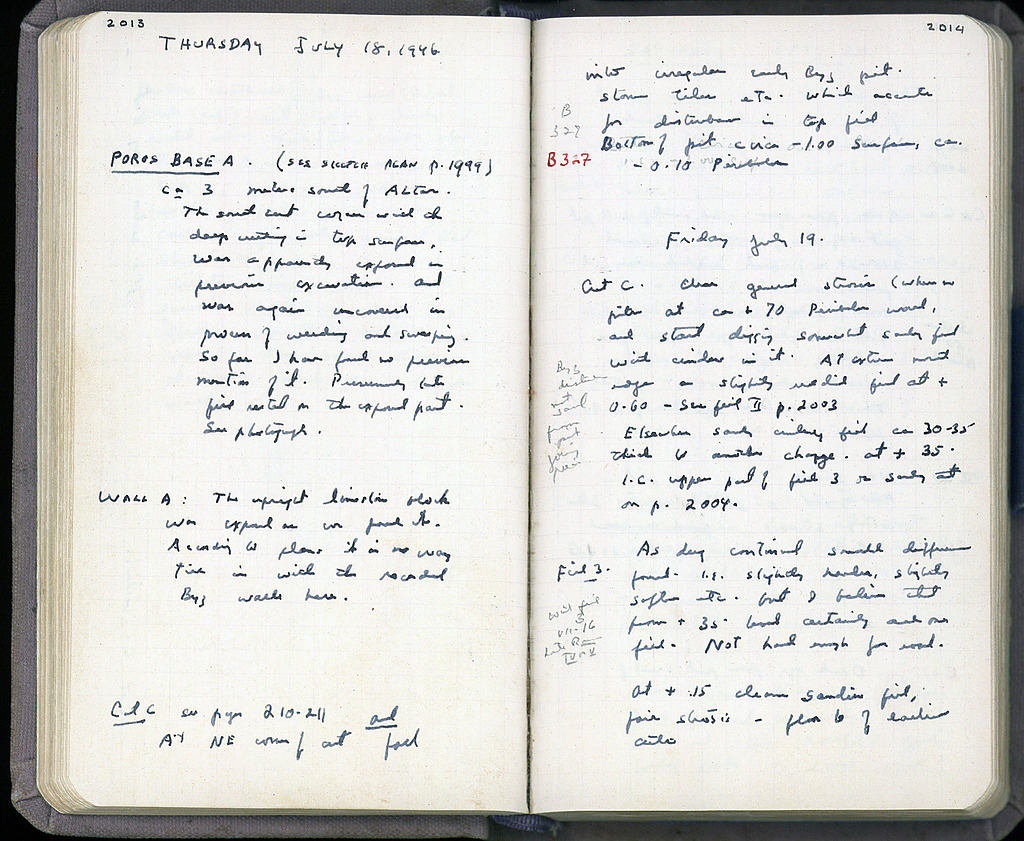 2013
THURSDAY JULY 18, 1946
POROS BASE A. (SEE SKETCH PLAN p. 1999)
ca 3 meters south of Altar.
The south east corner with the
deep cutting in top surface,
was apparently exposed in
previous excavation. and
was again uncovered in
process of weeding and sweeping.
So far I have found no previous
mention of it. Presumably late
fill rested on the exposed part.
See photograph.
WALL A: The upright limestone block
was exposed as we found it.
According to plans it in no way
ties in with the recorded
Byz walls here.
Cut C see pages 210-211 and
At NE corner of cut
2014
into irregular early Byz pit.
stones tiles etc. which accounts
for disturbance in top fill
Bottom of pit circa -1.00 surface, ca.
- 0.10 Peribolos
B
327
B327
Friday July 19.
Cut C. Clear general strosis (where no
pits at ca + 70 Peribolos wall,
and start digging somewhat sandy fill
with cinders in it. At extreme north
edge a slightly reddish fill at +
0.60 - See fill II p. 2003
Elsewhere sandy cindery fill ca 30-35
thick to another change. at + 35.
I.e. upper part of fill 3 or sandy at
on p. 2004.
Byz
from
pit
Fill 3.
As dug continued small differences
found. i.e. slightly harder, slightly
softer etc. but I believe that
from + 35 level certainly all one
fill. Not hard enough for road.
with fill
3
VII-16
Late R
At + .15 cleaner sandier fill,
fair strosis - floor 6 of earlier
cuts